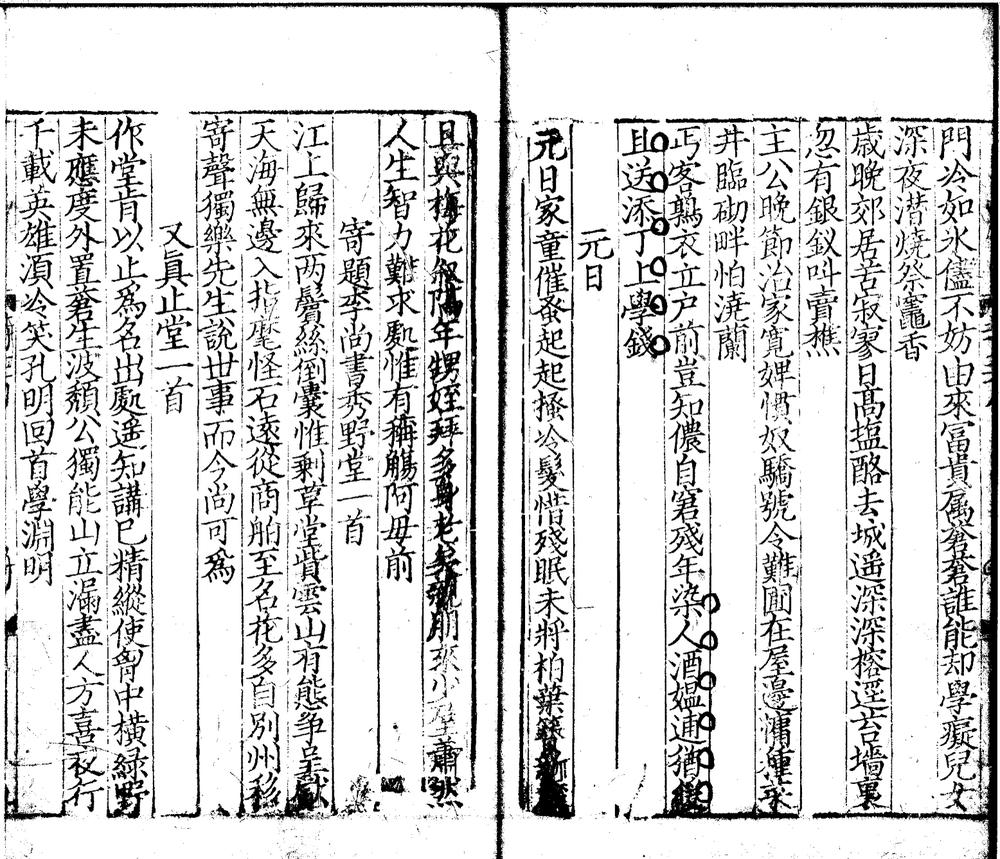 門冷如氷儘不妨由來冨貴属蒼蒼誰能却學癡兒女
深夜潜燒祭竈香
歳晚郊居苦寂寥日髙塩酪去城遥深深榕逕苔墻裏
忽有銀釵叫賣樵
主公晚節治家寛婢慣奴驕號令難園在屋邊慵種菜
井臨砌畔怕澆蘭
丐客鶉衣立户前豈知儂自窘殘年染人酒媪逋猶
且送添丁上學錢
元日
元日家童催蚤起起搔冷髮惜殘眠未將柏葉
且與梅花叙隔年甥姪拜多身老矣親朋來少屋蕭然
人生智力難求處惟有稱觴阿母前
寄題李尚書秀野堂一首
江上歸來两鬢絲倒囊惟剩草堂貲雲山有態争呈獻
天海無邊入指麾怪石遠從商舶至名花多自別州移
寄聲獨樂先生說世事而今尚可爲
又真止堂一首
作堂肯以止爲名出處遥知講已精縱使胷中横綠野
未應度外置蒼生波頹公獨能山立漏盡人方喜夜行
千載英雄湏冷笑孔明回首學淵明